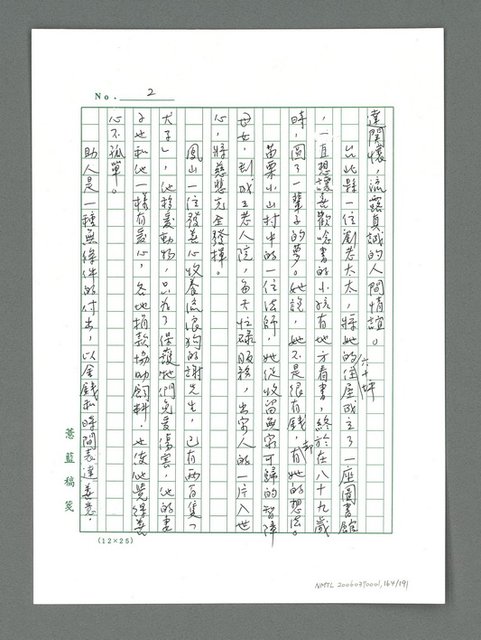 No. 2
達関懷，流露真誠的人間情誼。
台北縣一位劉老太太，將她的六十坪住屋成立了一座圖書館
，一直想讓喜歡唸書的小孩有地方看書，終於在八十九歲
時，圓了一輩子的夢。她說，她不是很有錢，却有她的想法。
苗栗小山村中的一位法師，她從收留無家可歸的智障
母女，到成立老人院，每天忙碌服務，出家人的一片入世
心，將慈悲完全發揮。
鳳山一位發善心收養流浪狗的謝先生，已有兩百隻「
犬子」，他移愛動物，只為了保護牠們免受傷害，他的妻
子也和他一樣有愛心，各地捐款協助飼料，也使他覺得善
心不孤單。
助人是一種無條件的付出，以金錢和時間表達善意，
薏藍稿箋
(12×25)
NMTL 20060390001, 164/191